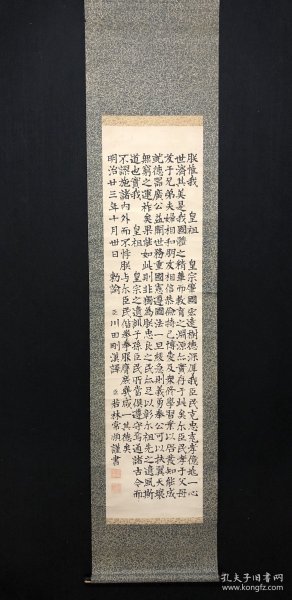 朕惟我 皇祖 皇宗肇國宏遠樹德深厚我臣民克忠克孝億兆一心
世濟其美是我國體之精華而教育之淵源亦實存于此矣尒臣民孝于父母
友于兄弟夫婦相和朋友相信恭儉持己博愛及衆修學習業以啓發知能成
就德器廣公益開世務重國憲遵國法一旦緩急則義勇奉公可以扶翼天壤
無窮之運祚矣果能如此則非獨為朕忠良之民亦足以彰尒祖先之遺風斯
道也實我 皇祖 皇宗之遺訓子孫臣民所當俱遵守焉通諸古今而
不謬施諸内外而不悖朕與尒臣民偕拳拳服膺庶幾咸一其德矣
明治廿三年十月卅日 勅諭 臣川田剛漢譯 臣若林常 謹書
孔夫子旧书网